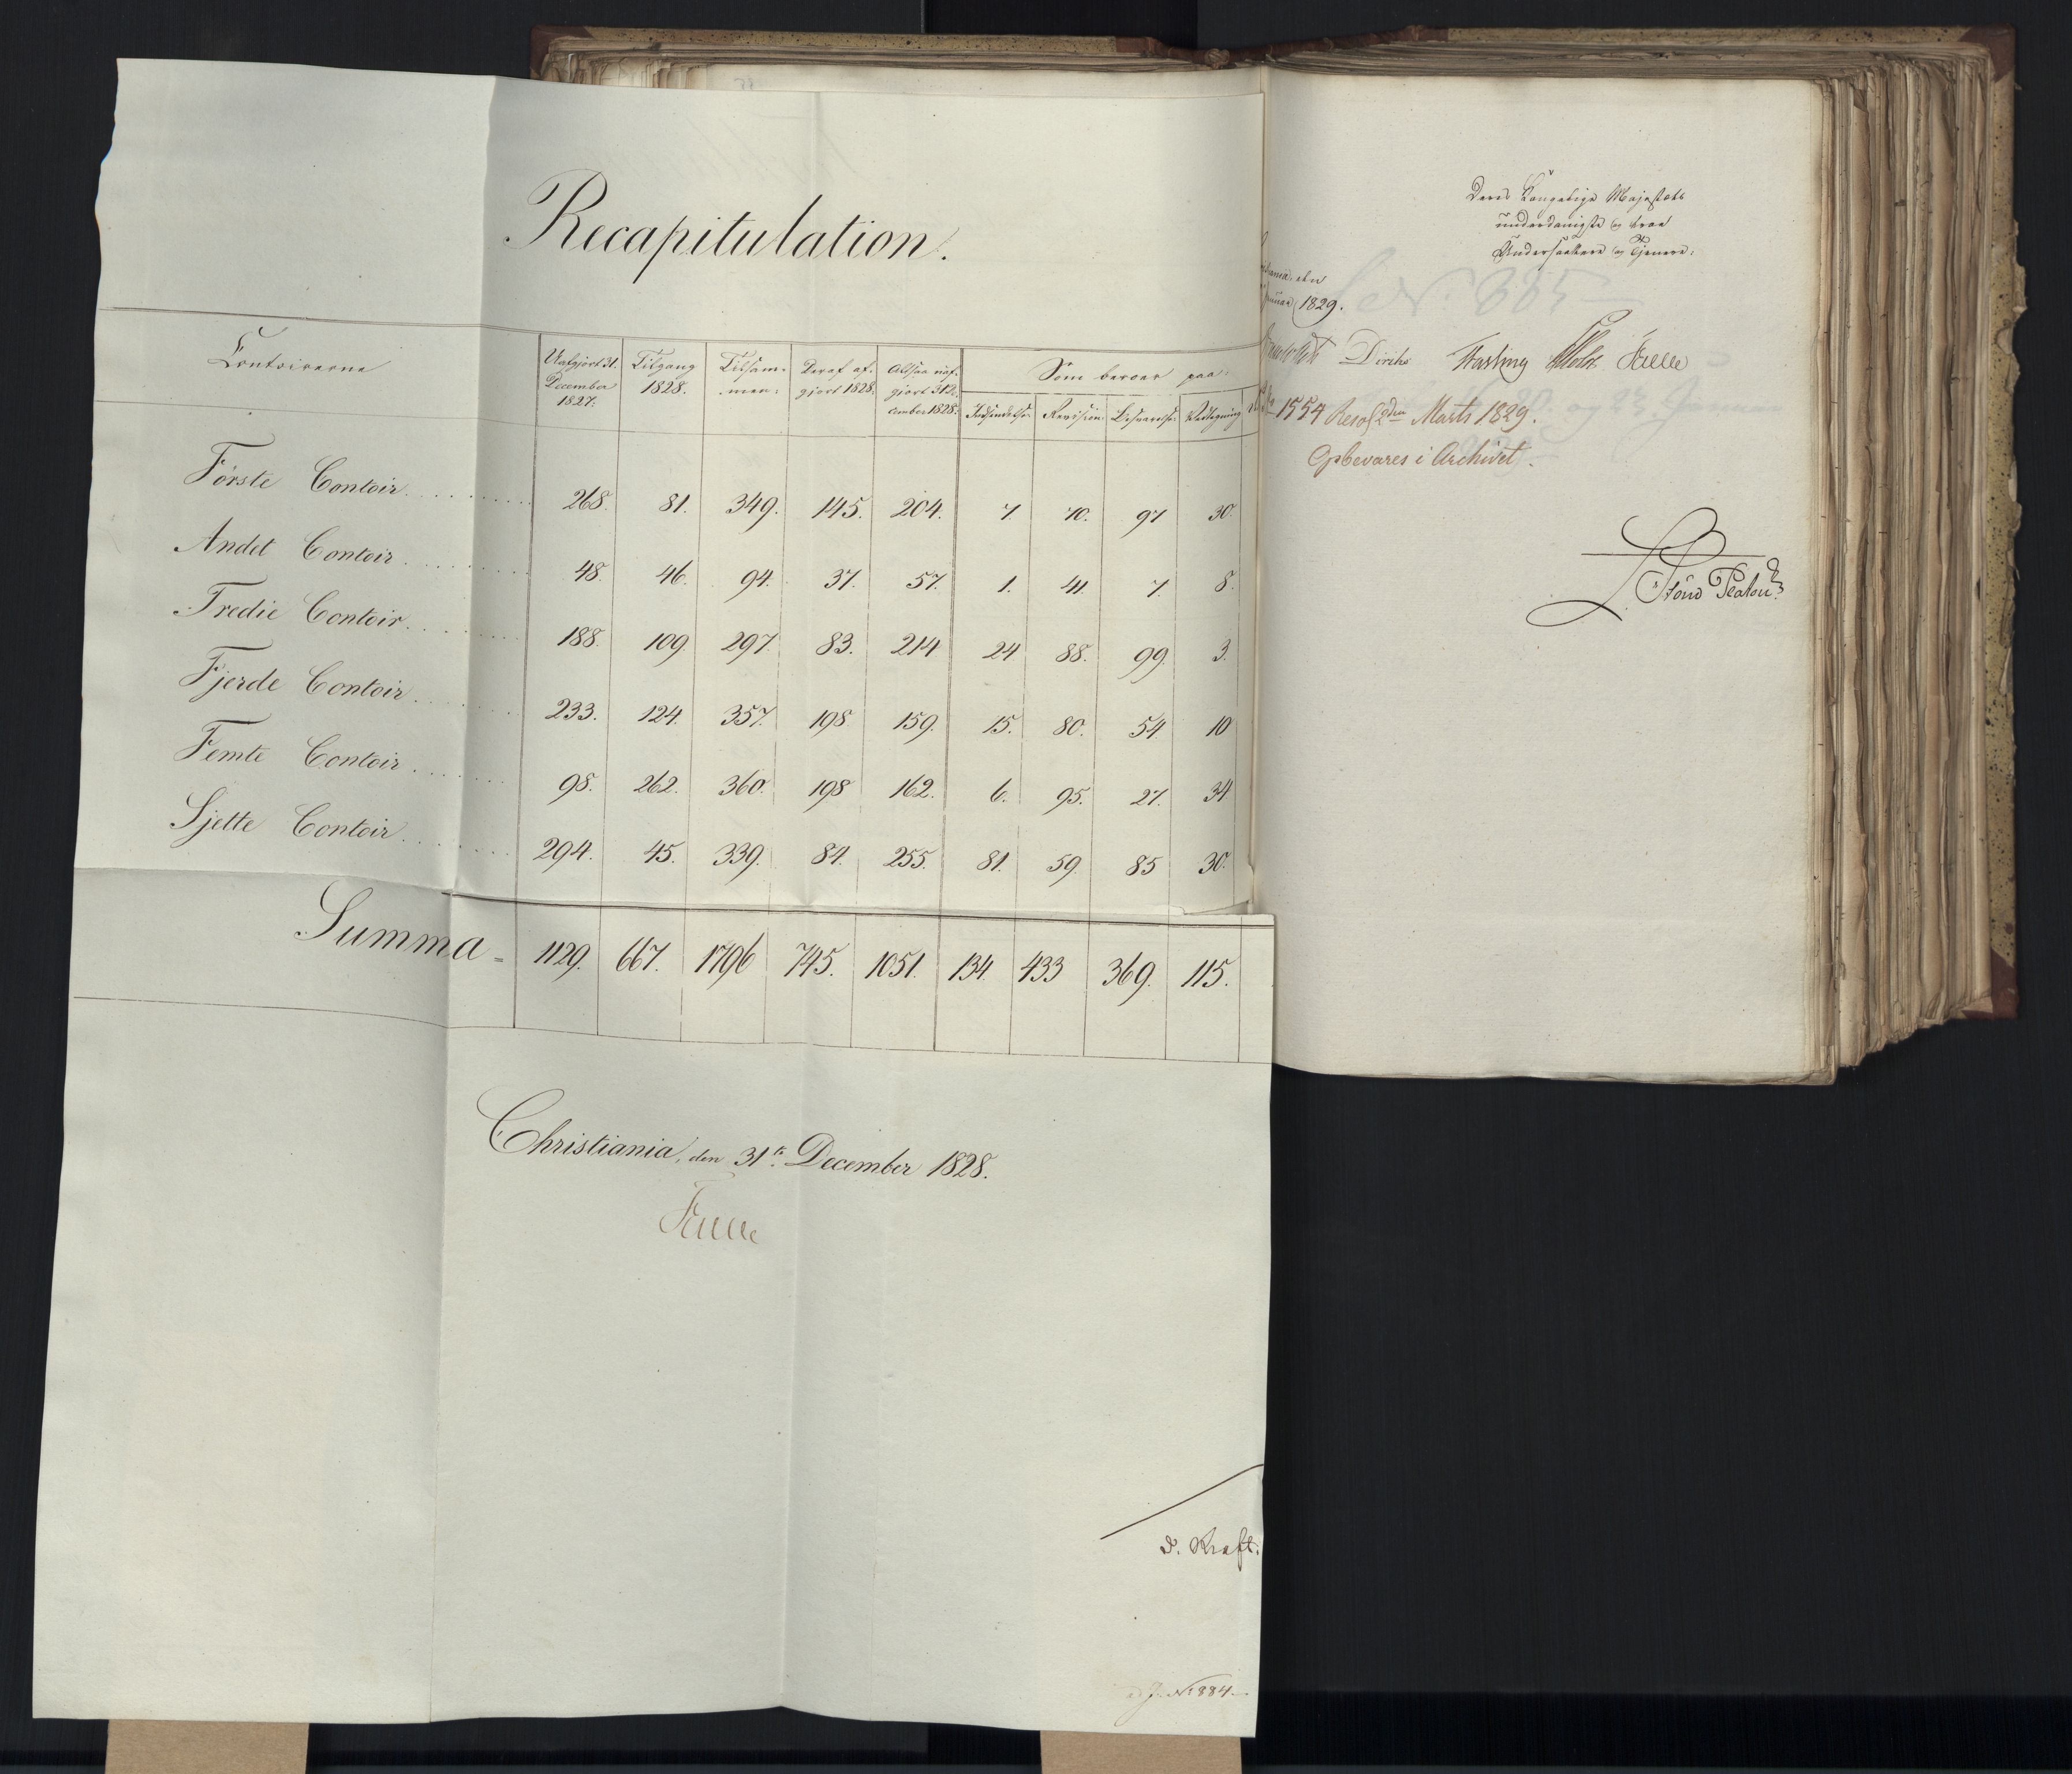 Recapitulation.
Contoirerne
Uafgjort 31.
December
1827.
Tilgang
1828.
Tilsam-
men.
Deraf af-
gjort 1828.
Altsaa uaf-
gjort 31 De-
cember 1828.
Som beroer paa:
Indsendelse. Revision. Besvarelse. Paategning
Første Contoir 268. 81. 349. 145. 204. 7. 70. 97 30.
Andet Contoir 48. 46. 94. 37. 57. 1. 41. 7. 8.
Tredie Contoir 188. 109 297. 83. 214 24 88. 99. 3.
Fjerde Contoir 233. 124. 357. 198 159. 15. 80. 54 10
Femte Contoir 98. 262. 360. 198 162. 6. 95. 27. 34
Sjette Contoir 294. 45. 339. 84. 255. 81. 59. 85 30.
Summa = 1129. 667. 1796 745. 1051. 134. 433 369. 115.
Christiania, den 31te December 1828.
J. Kraft.
No 884
Deres Kongelige Majestæts
underdanigste og troe
Undersaatter og Tjenere:
den
1829.
Diriks Fasting Holst
1554 Resol. 2den Marts 1829.
Opbevares i Archivet.